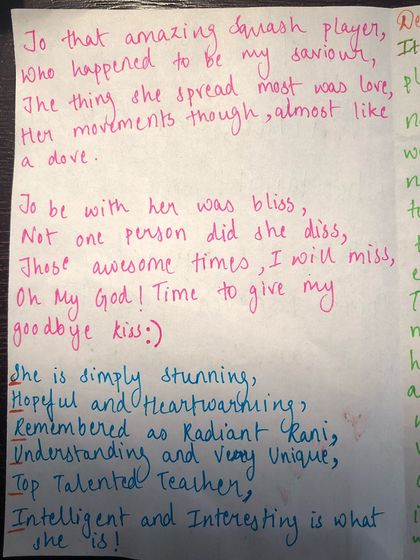 To that amazing Squash player,
Who happened to be my saviour,
The thing she spread most was love,
Her movements though, almost like
a dove.
To be with her was bliss,
Not one person did she diss,
Those awesome times, I will miss,
Oh My God! Time to give my
goodbye kiss:)
She is simply stunning,
Hopeful and Heartwarming,
Remembered as Radiant Rani,
Understanding and Very Unique,
Top Talented Teacher,
Intelligent and Interesting is what
she is!